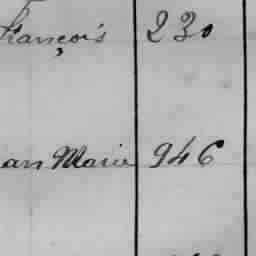 François 230
an Marie 946